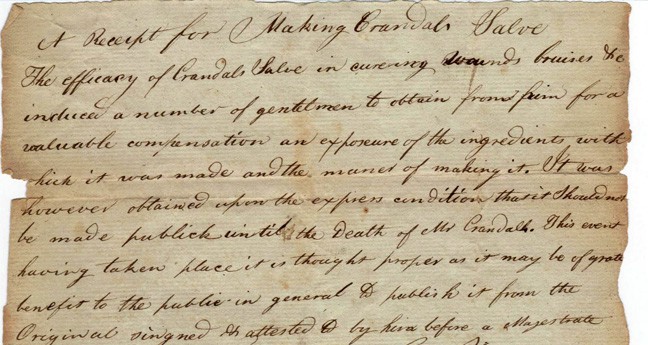 A Receipt for Making Crandals Salve
The efficacy of Crandals Salve in cureing wounds bruises &c
induced a number of gentelmen to obtain from him for a
valuable compensation an exposeure of the ingredients with
which it was made and the maner of making it. It was
however obtained upon the express condition that it Should not
be made publick until the Death of Mr Crandals. This event
having taken place it is thought proper as it may be of grate
benefit to the public in general to publish it from the
Original singned & attested to by him before a Majestrate